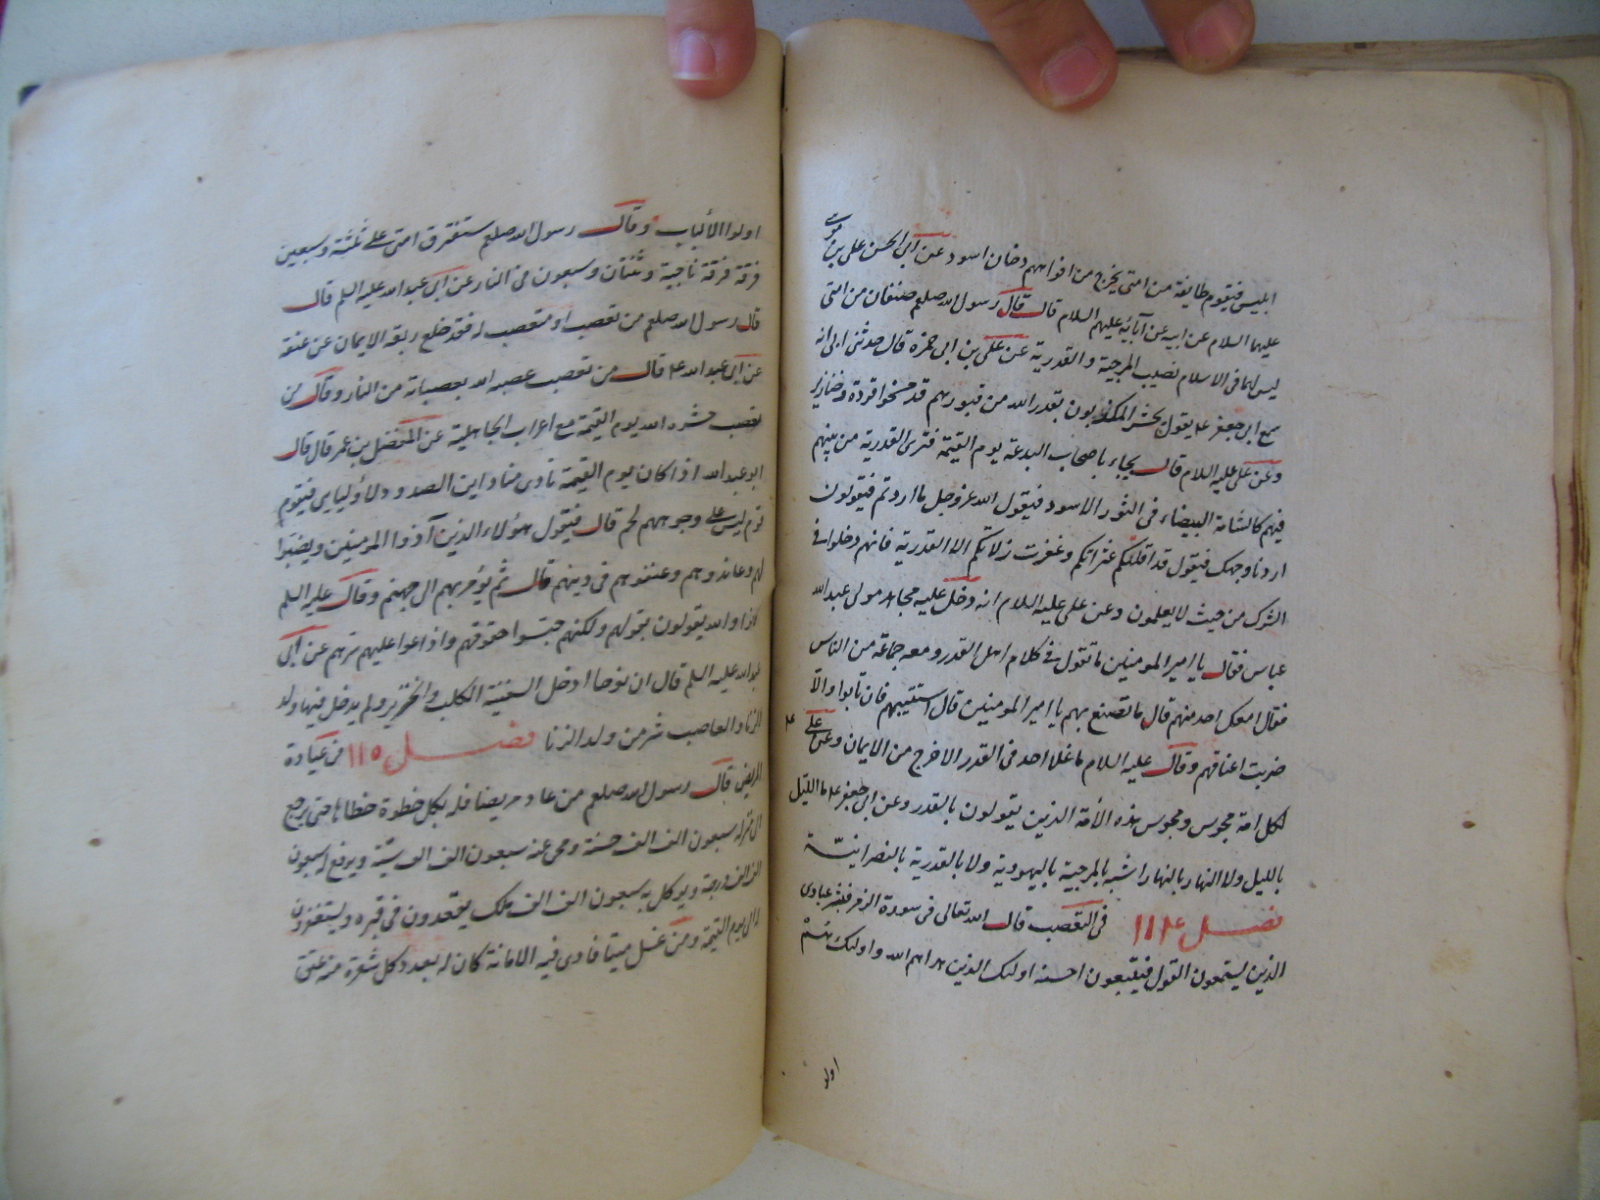 ابليس فيقوم طايفة من امتى يخرج من افواههم دخان اسود عن ابى الحسن على بن موسى
عليهما السلام عن ابيه عن آبائه عليهم السلام قال قال رسول الله صلعم صنفان من امتى
ليس لهما فى الاسلام نصيب المرجية والقدرية عن على بن ابى حمزه قال حدثنى ابى انه
سمع ابى جعفر ع يقول يحشر المكذبون بقدر الله من قبورهم قد مسخوا قردة وخنازير
وعن على عليه السلام قال يجاء باصحاب البدعة يوم القيمة فترى القدرية من بينهم
فيهم كالشامة البيضاء فى الثور الاسود فيقول الله عز وجل ما اردتم فيقولون
اردنا وجهك فيقول قد اقلتكم عثراتكم وغفرت زلاتكم الا القدرية فانهم دخلوا فى
الشرك من حيث لا يعلمون وعن على عليه السلام انه دخل عليه مجاهد مولى عبد الله
عباس فقال يا امير المومنين ما تقول فى كلام اهل القدر ومعه جماعة من الناس
فقال امعك احد منهم قال ما تصنع بهم يا امير المومنين قال استتيبهم فان تابوا والّا
ضربت اعناقهم وقال عليه السلام ما غلا احد فى القدر الا خرج من الايمان وعن على ع
لكل امة مجوس ومجوس هذه الأمة الذين يقولون بالقدر وعن ابى جعفر ع ما الليل
بالليل ولا النهار بالنهار اشبه بالمرجية باليهودية ولا بالقدرية بالنصرانيّة
فصل ١١۴ فى التعصب قال الله تعالى فى سورة الزمر فبشر عبادى
الذين يستمعون القول فيتبعون احسنه اولئك الذين هداهم الله واولئك هم
اولو
اولوا الألباب وقال رسول الله صلعم ستفترق امتى على ثلثة وسبعين
فرقة فرقة ناجية وثنتان وسبعون فى النار عن ابى عبد الله عليه السلم قال
قال رسول الله صلعم من تعصب او متعصب له فقد خلع ربقة الايمان عن عنقه
عن ابى عبد الله ع قال من تعصب عصبه الله بعصباته من النار وقال من
تعصب حشره الله يوم القيمة مع اعراب الجاهلية عن المفضل بن عمر قال قال
ابو عبد الله اذا كان يوم القيمة نادى مناد اين الصدود لأوليايى فيقوم
قوم ليس على وجوههم لحم قال فيقول هؤلاء الذين آذوا المومنين ونصبوا
لهم وعاندوهم وعنفوهم فى دينهم قال ثم يؤمر بهم الى جهنم وقال عليه السلم
كانوا والله يقولون بقولهم ولكنهم حبسوا حقوقهم واذاعوا عليهم سرهم عن ابى
عبد الله عليه السلم قال ان نوحا ادخل السفينة الكلب والخنزير ولم يدخل فيها ولد
الزنا والعاصب شر من ولد الزنا فصل ١١٥ فى عيادة
المريض قال رسول الله صلعم من عاد مريضا فله بكل خطوة خطاها حتى يرجع
الى منزله سبعون الف الف حسنة ومحى عنه سبعون الف الف سيّة ويرفع له سبعون
الف الف درجة ويوكل به سبعون الف الف ملك يقعدون فى قبره ويستغفرون
له الى يوم القيمة ومن غسل ميتا فادى فيه الامانة كان له بعدد كل شعرة منه عتق